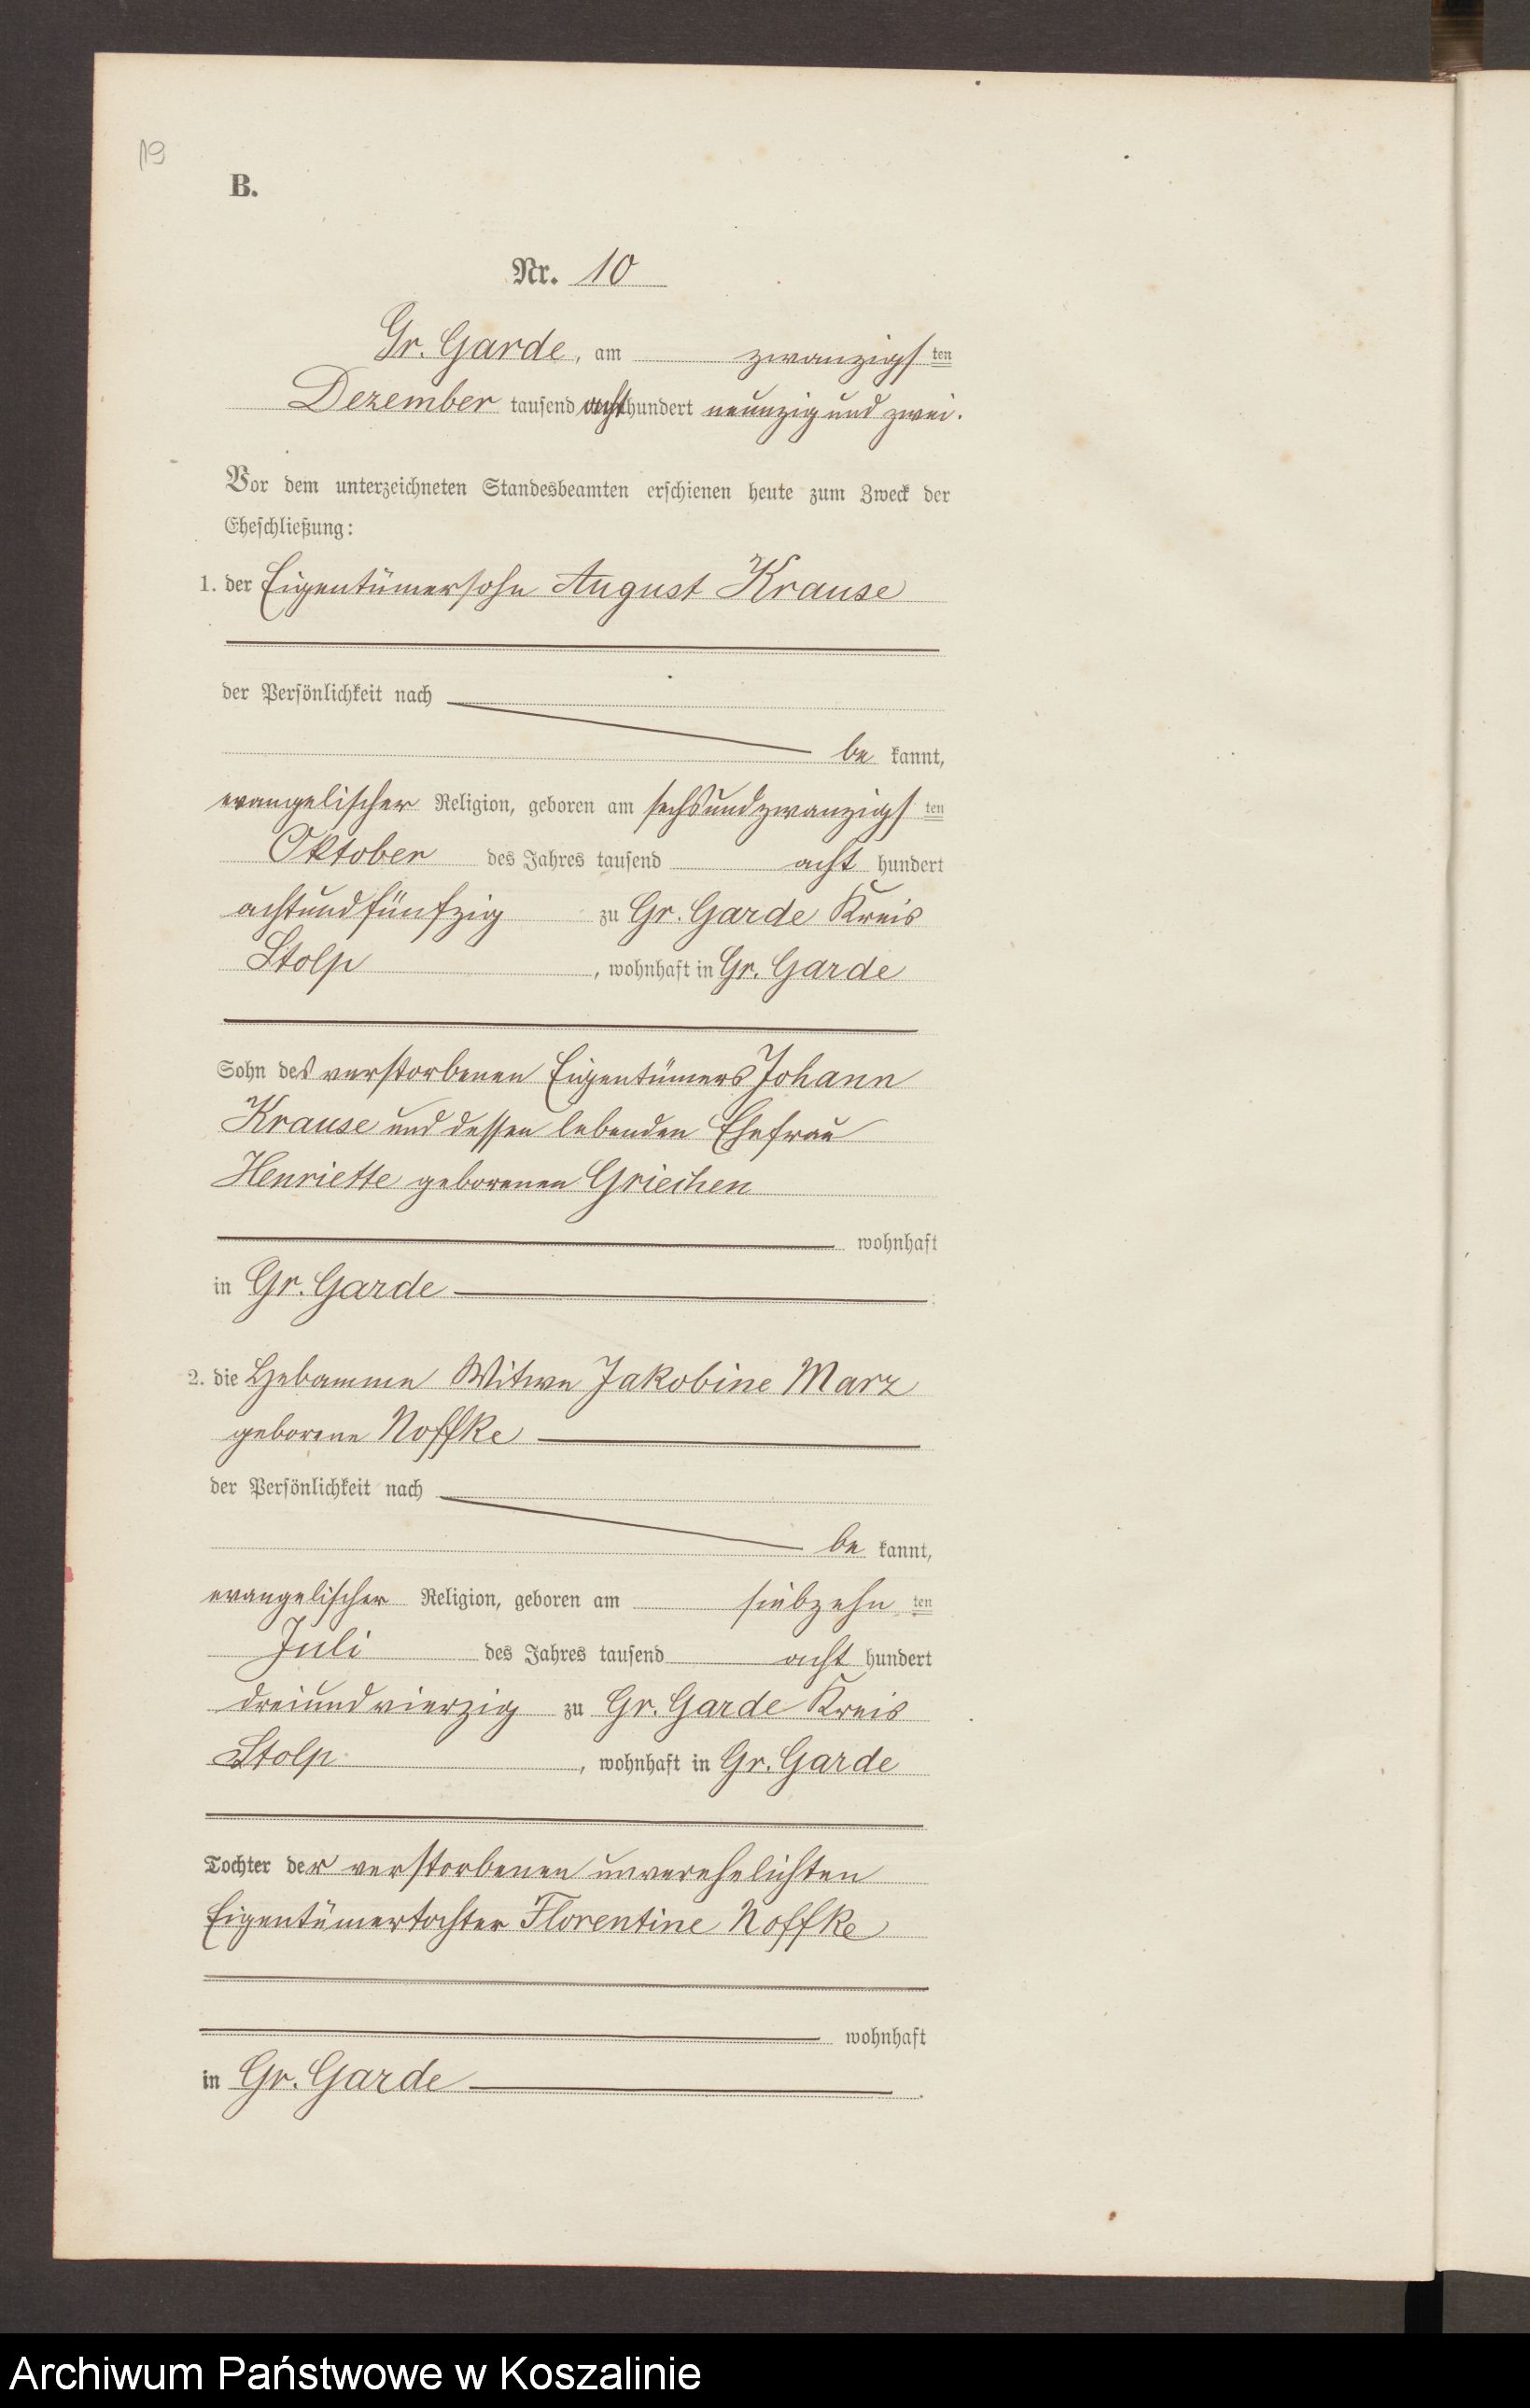 19
B.
Nr. 10
Gr. Garde, am zwanzigsten
Dezember tausend achthundert neunzig und zwei.
Vor dem unterzeichneten Standesbeamten erschienen heute zum Zweck der
Eheschließung:
1. der Eigentümersohn August Krause
der Persönlichkeit nach
be kannt,
evangelischer Religion, geboren am sechsundzwanzigsten
Oktober des Jahres tausend acht hundert
achtundfünfzig zu Gr. Garde Kreis
Stolp, wohnhaft in Gr. Garde
Sohn des verstorbenen Eigentümers Johann
Krause und dessen lebenden Ehefrau
Henriette geborenen Griechen
wohnhaft
in Gr. Garde
2. die Hebamme Witwe Jakobine Marz
geborene Noffke
der Persönlichkeit nach
be kannt,
evangelischer Religion, geboren am siebzehn ten
Juli des Jahres tausend acht hundert
dreiundvierzig zu Gr. Garde Kreis
Stolp, wohnhaft in Gr. Garde
Tochter der verstorbenen unverehelichten
Eigentümertochter Florentine Noffke
wohnhaft
in Gr. Garde.
Archiwum Państwowe w Koszalinie